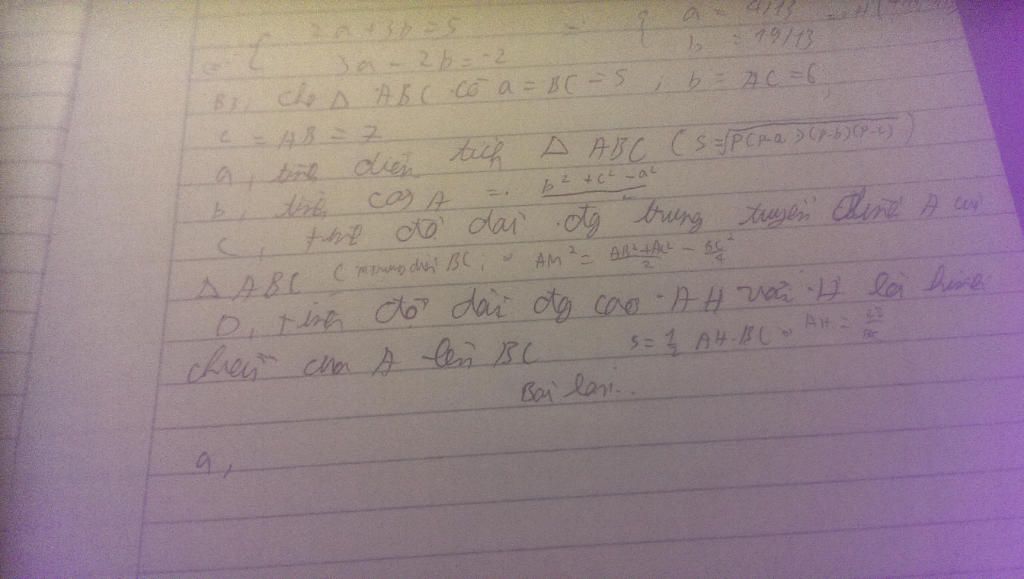 { 2a + 3b = 5 => { a = 4/13
3a - 2b = -2 b = 19/13
B3, cho Δ ABC có a = BC = 5 ; b = AC = 6,
c = AB = 7
a, tính diện tích Δ ABC ( S = √P(P-a)(P-b)(P-c) )
b, tính cos A = b² + c² - a²
c, tính độ dài đg trung tuyến đỉnh A của
Δ ABC ( BC, AM² = AB²+AC²/2 - BC²/4
D, tính độ dài đg cao AH với H là hình
chiếu của A lên BC S = 1/2 AH.BC AH = 2S/BC
Bài làm..
a,